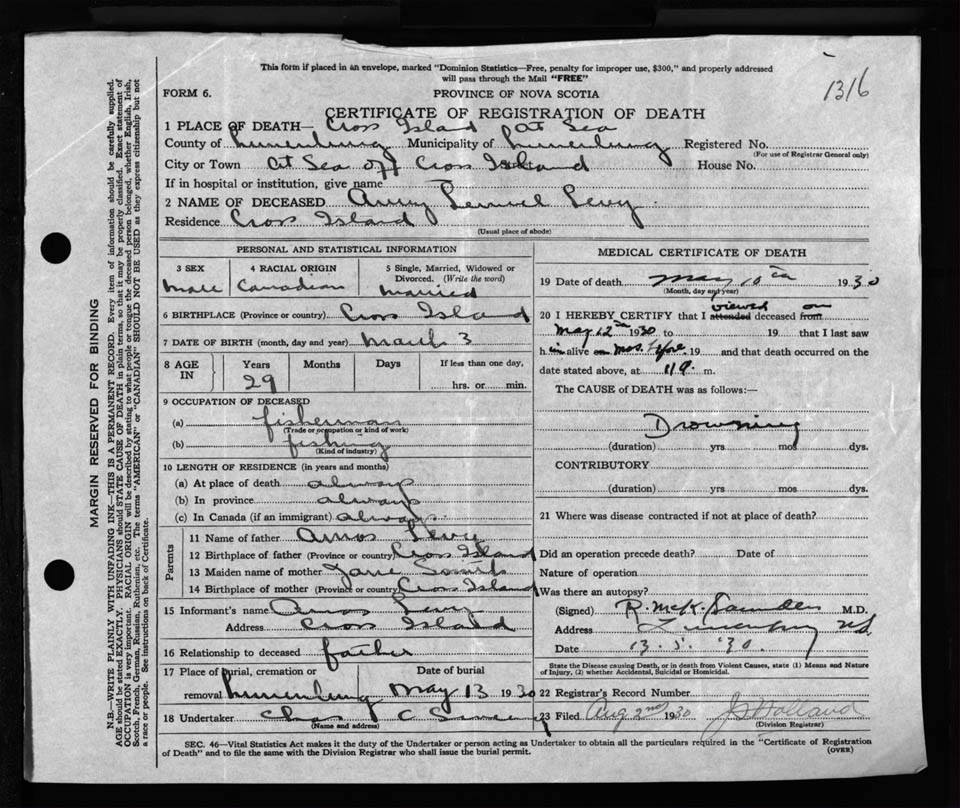 1316
This form if placed in an envelope, marked "Dominion Statistics—Free, penalty for improper use, $300," and properly addressed
will pass through the Mail "FREE"
FORM 6.
PROVINCE OF NOVA SCOTIA
CERTIFICATE OF REGISTRATION OF DEATH
1 PLACE OF DEATH— Cross Island at Sea
County of Lunenburg Municipality of Lunenburg Registered No.
(For use of Registrar General only)
City or Town at Sea off Cross Island House No.
If in hospital or institution, give name
2 NAME OF DECEASED Lemuel Levy
Residence Cross Island
(Usual place of abode)
PERSONAL AND STATISTICAL INFORMATION
3 SEX 4 RACIAL ORIGIN 5 Single, Married, Widowed or
Divorced. (Write the word)
Male Canadian Married
6 BIRTHPLACE (Province or country) Cross Island
7 DATE OF BIRTH (month, day and year) March 3
8 AGE IN Years Months Days If less than one day,
29 hrs. or min.
9 OCCUPATION OF DECEASED
(a) fisherman
(Trade or occupation or kind of work)
(b) fishing
(Kind of industry)
10 LENGTH OF RESIDENCE (in years and months)
(a) At place of death always
(b) In province always
(c) In Canada (if an immigrant) always
Parents
11 Name of father Amos Levy
12 Birthplace of father (Province or country) Cross Island
13 Maiden name of mother Jane
14 Birthplace of mother (Province or country) Cross Island
15 Informant's name Amos Levy
Address Cross Island
16 Relationship to deceased father
17 Place of burial, cremation or Date of burial
removal Lunenburg May 13 1930
18 Undertaker Chas C
(Name and address)
MEDICAL CERTIFICATE OF DEATH
19 Date of death May 10th 1930
(Month, day and year)
viewed on
20 I HEREBY CERTIFY that I attended deceased from
May 12th 1930 to 19 that I last saw
h im alive on mos. before 19 and that death occurred on the
date stated above, at 11 a. m.
The CAUSE of DEATH was as follows:—
Drowning
(duration) yrs mos dys.
CONTRIBUTORY
(duration) yrs mos dys.
21 Where was disease contracted if not at place of death?
Did an operation precede death? Date of
Nature of operation
Was there an autopsy?
(Signed) R. McK. Saunders M.D.
Address Lunenburg NS.
Date 13. 5. '30.
State the Disease causing Death, or in death from Violent Causes, state (1) Means and Nature
of Injury, (2) whether Accidental, Suicidal or Homicidal.
22 Registrar's Record Number
23 Filed Aug 2nd 1930 Holland
(Division Registrar)
SEC. 46—Vital Statistics Act makes it the duty of the Undertaker or person acting as Undertaker to obtain all the particulars required in the "Certificate of Registration
of Death" and to file the same with the Division Registrar who shall issue the burial permit.
(OVER)
MARGIN RESERVED FOR BINDING
N.B.—WRITE PLAINLY WITH UNFADING INK—THIS IS A PERMANENT RECORD. Every item of information should be carefully supplied.
AGE should be stated EXACTLY. PHYSICIANS should STATE CAUSE OF DEATH in plain terms, so that it may be properly classified. Exact statement of
OCCUPATION is very important. RACIAL ORIGIN will be described by stating to what people or tongue the deceased person belonged, whether English, Irish,
Scotch, French, German, Russian, Ruthenian, etc. The terms "AMERICAN" or "CANADIAN" SHOULD NOT BE USED as they express citizenship but not
a race or people. See instructions on back of Certificate.